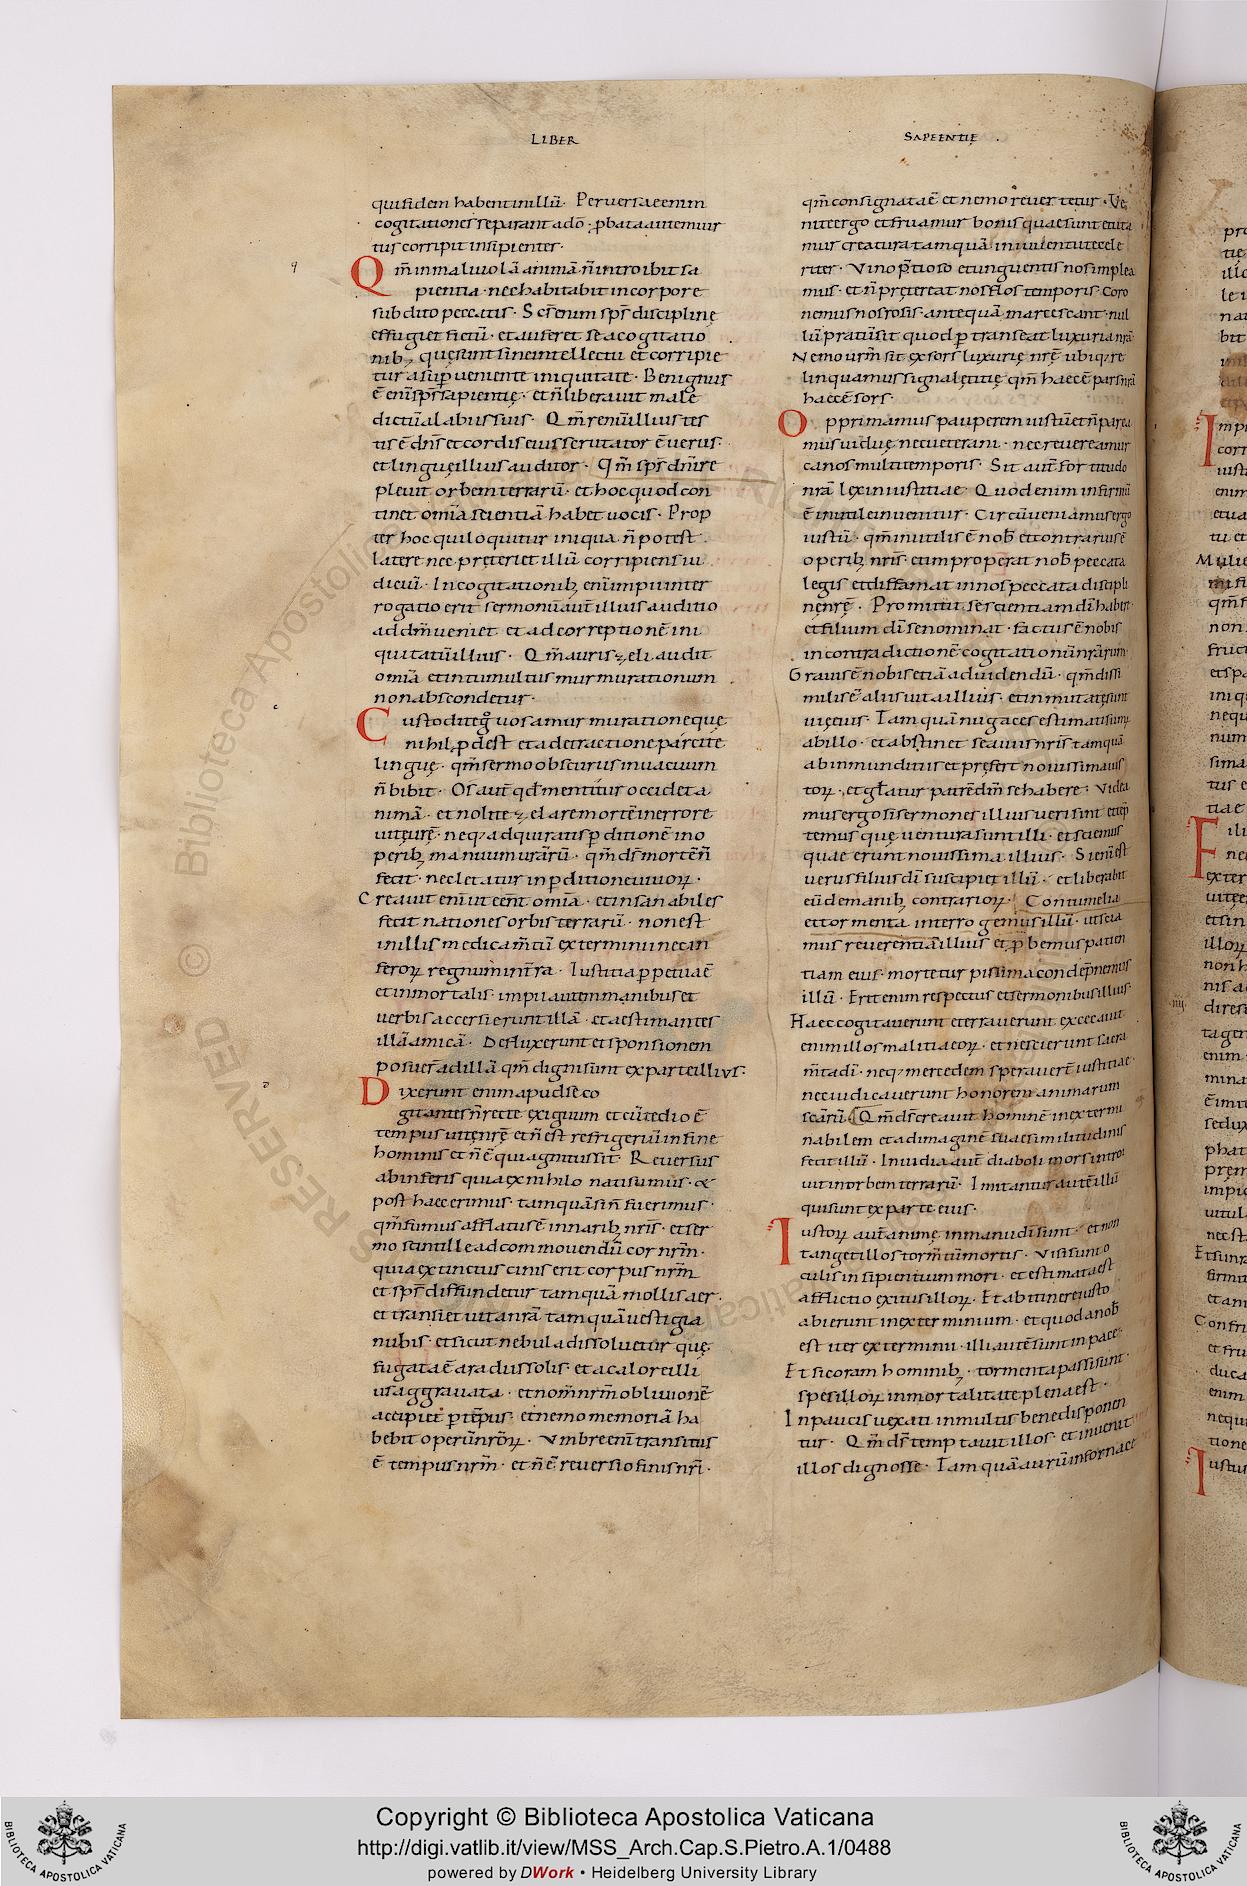 LIBER
SAPIENTIĘ
qui fidem habent in illū. Perversae enim
cogitationes separant a dō. ꝓbata autem uir
tus corripit insipientes.
Qm̄ in maliuolā animā ñ introibit sa
pientia. nec habitabit in corpore
subdito peccatis. Sc̄s enim sp̄s disciplinę
effugiet fictū. et auferet se a cogitatio
nib; quę sunt sine intellectu et corripie
tur a suꝑueniente iniquitate. Benignus
ē eni sp̄s sapientię. et ñ liberauit male
dictū a labiis suis. Qm̄ renū illius tes
tis ē dn̄s et cordis eius scrutator ē uerus.
et linguę illius auditor. Qm̄ sp̄s dn̄i re
pleuit orbem terrarū. et hoc quod con
tinet omīa scientiā habet uocis. Prop
ter hoc qui loquitur iniqua. ñ potest
latere nec pręteriet illū corripiens iu
diciū. In cogitationib; enī impii inter
rogatio erit sermonū aut illius auditio
ad dm̄ ueniet. et ad correptionē ini
quitatū illius. Qm̄ auris zeli audit
omīa et tumultus murmurationum
non abscondetur.
Custodite gͦ uos a murmuratione quę
nihil ꝓdest et a detractione parcite
linguę. qm̄ sermo obscurus in uacuum
ñ ibit. Os aut qd̄ mentitur occidet a
nimā. et nolite zelare mortē in errore
uitę urę̄. neq; adquiratis ꝑditionē in o
perib; manuum urārū. qm̄ ds̄ mortē ñ
fecit. nec letatur in ꝑditione uiuoꝝ.
Creauit enī ut eent omīa. et insanabiles
fecit nationes orbis terrarū. non est
in illis medicam̄tū exterminii nec an
feroꝝ regnum in tr̄a. Iustitia ꝑpetua ē
et inmortalis. impii autem manibus et
uerbis accersierunt illā. et aestimantes
illā amicā. Defluxerunt et sponsionem
posuer̄ ad illā qm̄ digni sunt ex parte illius.
Dixerunt enim apud se co
gitantes ñ recte. exiguum et cū tedio ē
tempus uitę nrę̄ et ñ est refrigeriū in fine
hominis et ñ ē qui agnitus sit. Reuersus
ab inferis quia ex nihilo nati sumus. &
post haec erimus. tamquā si ñ fuerimus.
qm̄ fumus afflatus ē in narib; nris̄. et ser
mo scintille ad commouendū cor nr̄m.
quia extinctus cinis erit corpus nr̄m
et sp̄s diffundetur tamquā mollis aer.
et transiet uita nr̄a tamquā uestigia
nubis. et sicut nebula dissoluetur quę
fugata ē a radiis solis. et a calore illi
us aggrauata. et nom̄ nr̄m obliuionē
accipiet ꝑ tēpus. et nemo memoriā ha
bebit operū nr̄oꝝ. Vmbre enī transitus
ē tempus nr̄m. et ñ ē reuersio finis nr̄i.
qm̄ consignata ē et nemo reuertetur. Ve
nite ergo et fruamur bonis quae sunt et uta
mur creatura tamquā in iuuentute cele
riter. Vino p̄tioso et unguentis nos implea
mus. et ñ prętereat nos flos temporis. Coro
nemus nos rosis. antequā marcescant. nul
lū pratū sit quod ꝑtranseat luxuria nrā
Nemo ur̄m sit exsors luxurię nrę̄ ubiq; re
linquamus signa letitię qm̄ haec ē pars nrā
haec ē sors.
Opprimamus pauperem iustū et ñ parca
mus uiduę nec ueterani. nec reuereamur
canos multi temporis. Sit aut fortitudo
nrā lex iniustitiae. Quod enim infirmū
ē inutile inuenitur. Circūueniamus ergo
iustū. qm̄ inutilis ē nob̄ et contrarius ē
operib; nris̄. et improperat nob̄ peccata
legis et diffamat in nos peccata discipli
nę nrę̄. Promittit se scientiam dī habere
et filium dī se nominat. factus ē nobis
in contradictionē cogitationū nr̄arum.
Grauis ē nobis etiā ad uidendū. qm̄ dissi
milis ē aliis uita illius. et inmutatę sunt
uię eius. Tamquā nugaces estimati sumus
ab illo. et abstinet se a uiis nris̄ tamquā
ab inmunditiis et pręfert nouissima ius
toꝝ. et gl̄atur patrē dm̄ se habere. Videa
mus ergo si sermones illius ueri sint. et tep̄
temus quę uentura sunt illi. et sciemus
quae erunt nouissima illius. Si enī est
uerus filius dī suscipiet illū. et liberabit
eū de manib; contrarioꝝ. Contumelia
et tormenta interrogemus illū. ut scia
mus reuerentiā illius et ꝓbemus patien
tiam eius. morte turpissima condep̄nemus
illū. Erit enim respectus ex sermonibus illius.
Haec cogitauerunt et errauerunt. excecauit
enim illos malitia eoꝝ. et nescierunt sacra
m̄ta dī. neq; mercedem sperauer̄t iustitiae.
nec iudicauerunt honorem animarum
scārū. Qm̄ ds̄ creauit hominē inextermi
nabilem et ad imaginē suae similitudinis
fecit illū. Inuidia aut diaboli mors introi
uit in orbem terrarū. Imitantur autē illū
qui sunt ex parte eius.
Iustoꝝ aut animę in manu dī sunt. et non
tanget illos torm̄tū mortis. Visi sunt o
culis insipientium mori. et estimata est
afflictio exitus illoꝝ. Et ab itinere iusto
abierunt in exterminium. et quod a nob̄
est iter exterminii. illi autē sunt in pace.
Et si coram hominib;. tormenta passi sunt.
spes illoꝝ inmortalitate plena est.
In paucis uexati in multis bene disponen
tur. Qm̄ ds̄ temptauit illos. et inuenit
illos dignos se. Tamquā aurū in fornace
Copyright © Biblioteca Apostolica Vaticana
http://digi.vatlib.it/view/MSS_Arch.Cap.S.Pietro.A.1/0488
powered by DWork • Heidelberg University Library